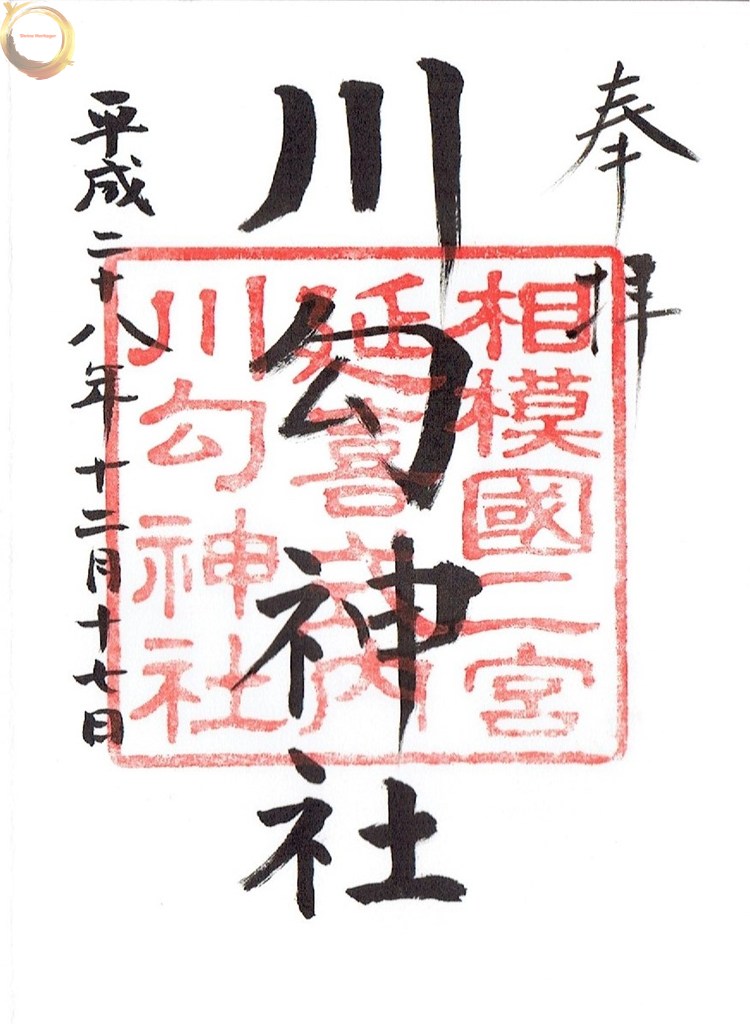 奉拝
川勾神社
平成二十八年十二月十七日
相模國二宮
延喜式内
川勾神社